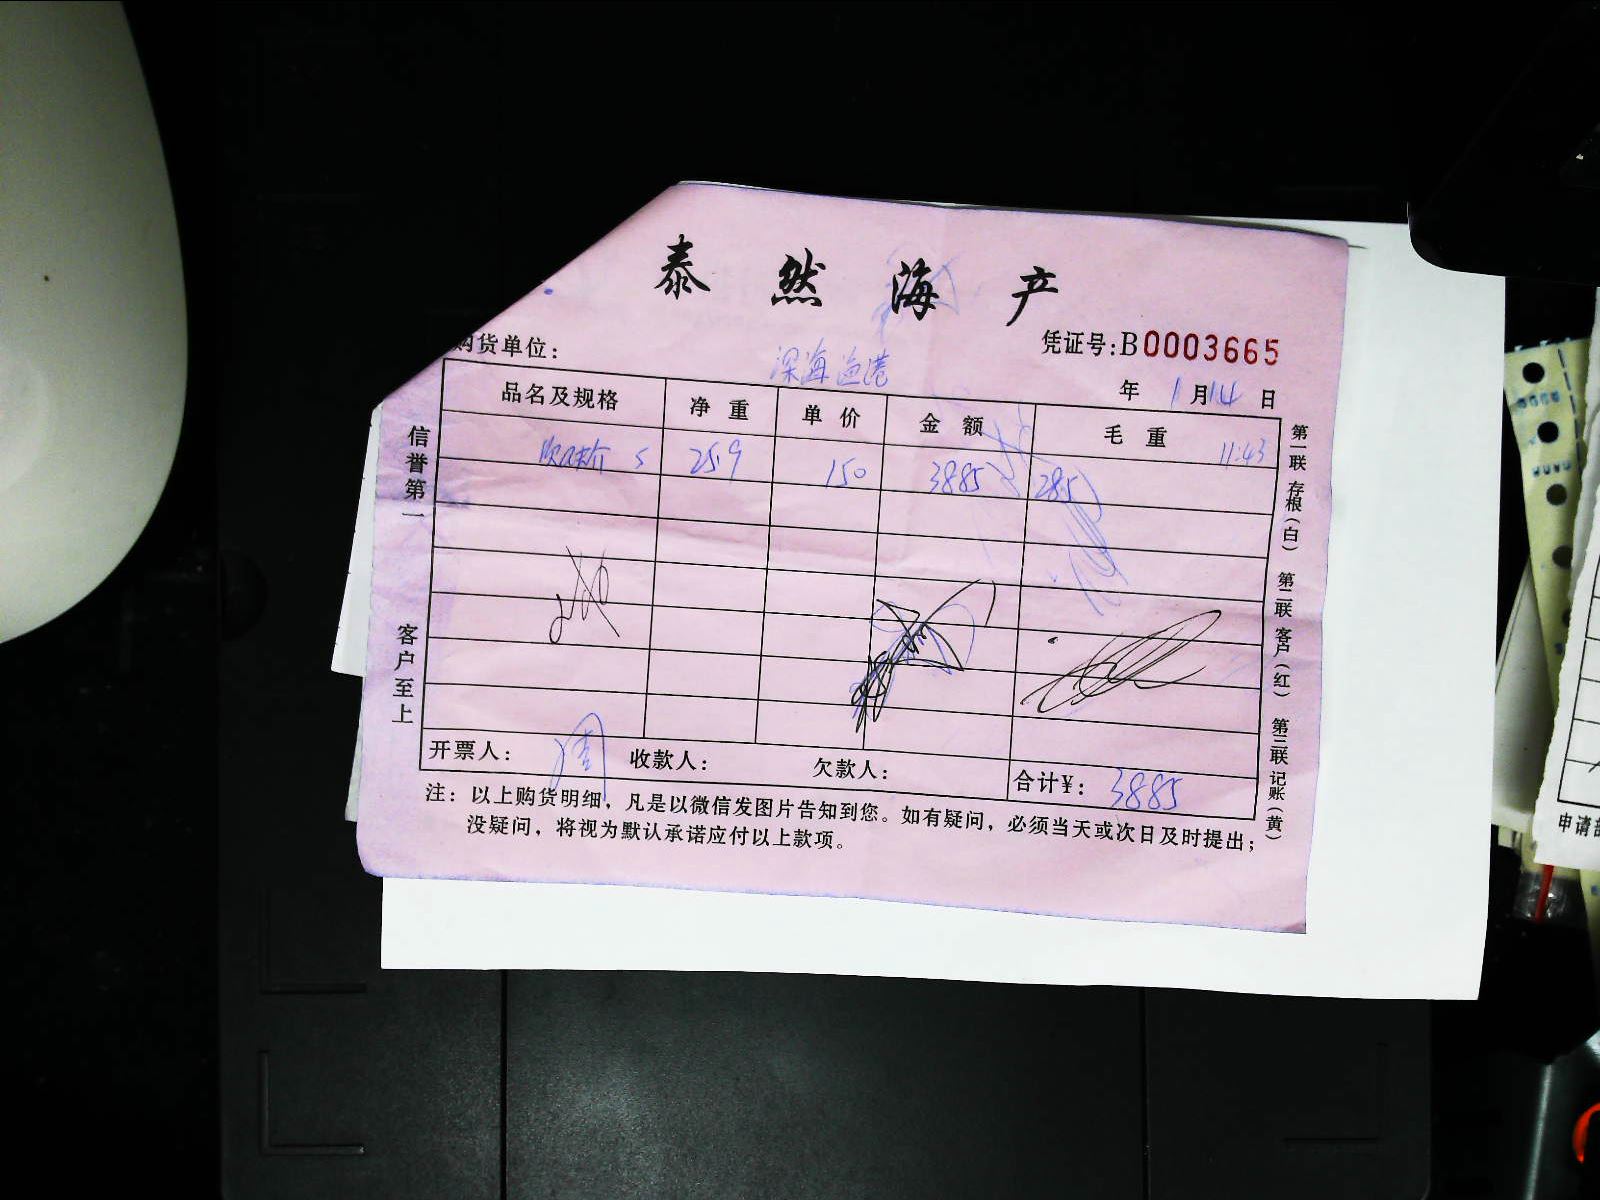 泰然海产
购货单位： 深海渔港
凭证号：B0003665
年 1月14日
品名及规格 净重 单价 金额 毛重
S 25.9 150 3885 28.5 11:43
信誉第一
客户至上
开票人：周 收款人： 欠款人： 合计¥：3885
注：以上购货明细，凡是以微信发图片告知到您。如有疑问，必须当天或次日及时提出；
没疑问，将视为默认承诺应付以上款项。
第一联 存根（白） 第二联 客户（红） 第三联 记账（黄）
申请